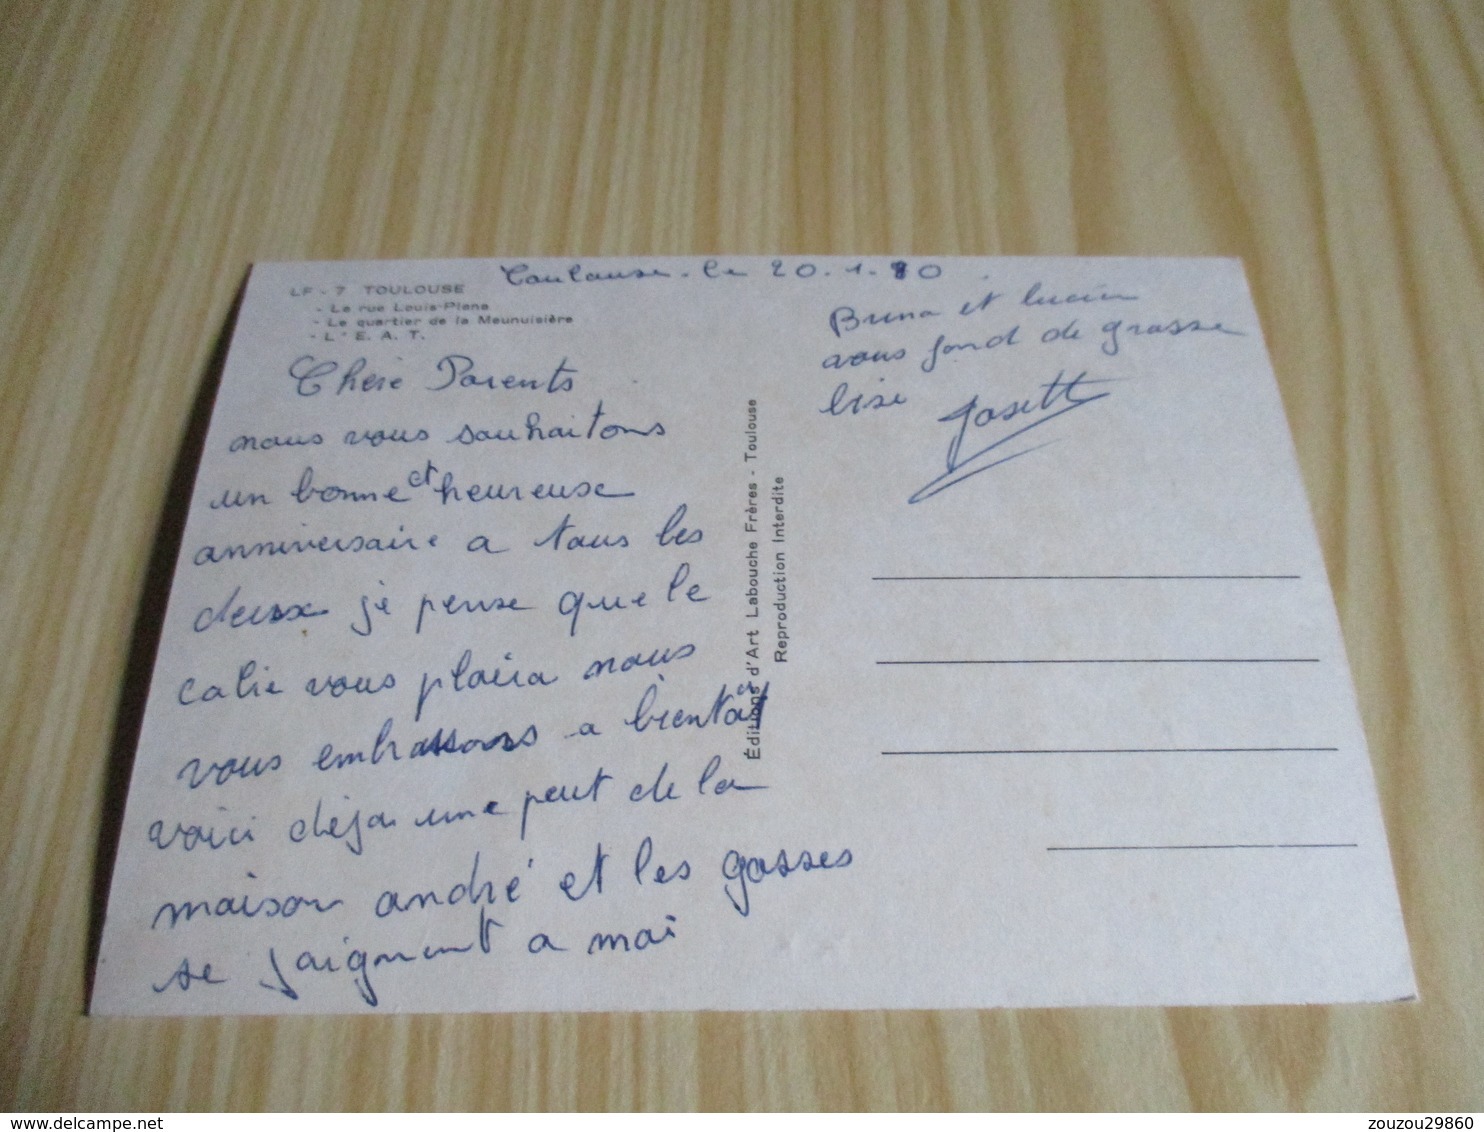 Toulouse le 20.1.80
LF - 7 TOULOUSE
- La rue Louis-Plana
- Le quartier de la Meunuisière
- L'E. A. T.
Chere Parents
nous vous souhaitons
un bonne et heureuse
anniversaire a tous les
deux je pense que le
calie vous plaira nous
vous embrassons a bientot
voici déja une peut de la
maison andré et les gosses
se joignent a moi
Bruno et lucien
vous font de grosse
bise Josett
Éditions d'Art Labouche Frères - Toulouse
Reproduction Interdite
zouzou29860